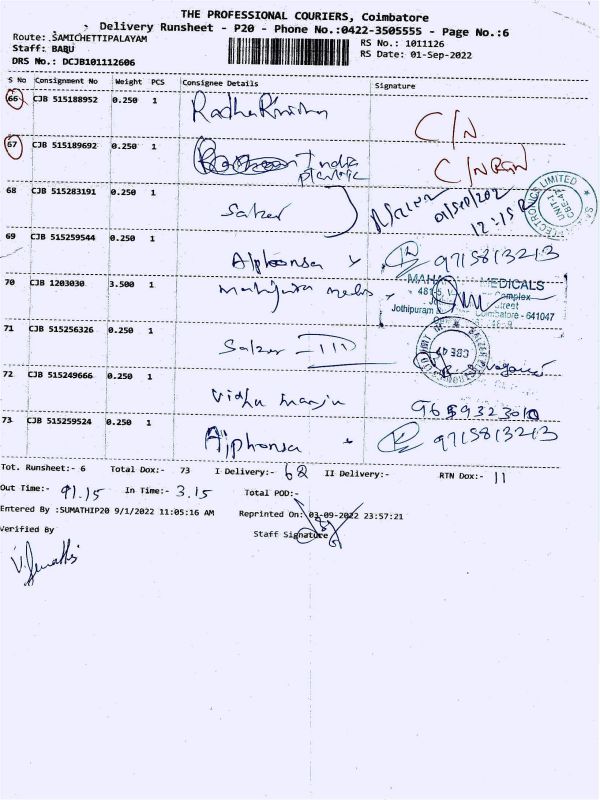 THE PROFESSIONAL COURIERS, Coimbatore
Delivery Runsheet - P20 - Phone No.:0422-3505555 - Page No.:6
Route: SAMICHETTIPALAYAM
Staff: BABU
DRS No.: DCJB101112606
RS No.: 1011126
RS Date: 01-Sep-2022
S No Consignment No Weight PCS Consignee Details Signature
66 CJB 515188952 0.250 1 C/N
67 CJB 515189692 0.250 1 India C/N
68 CJB 515283191 0.250 1 Salzer 12:15
69 CJB 515259544 0.250 1 Alphonsa 9715813213
70 CJB 1203030 3.500 1 MEDICALS
Complex
Street
Jothipuram Coimbatore - 641047
71 CJB 515256326 0.250 1 Salzer - III
72 CJB 515249666 0.250 1 Vidhu Manju 9659323010
73 CJB 515259524 0.250 1 Alphonsa 9715813213
Tot. Runsheet:- 6 Total Dox:- 73 I Delivery:- 62 II Delivery:- RTN Dox:- 11
Out Time:- 91.15 In Time:- 3.15 Total POD:-
Entered By :SUMATHIP20 9/1/2022 11:05:16 AM Reprinted On: 03-09-2022 23:57:21
Verified By Staff Signature